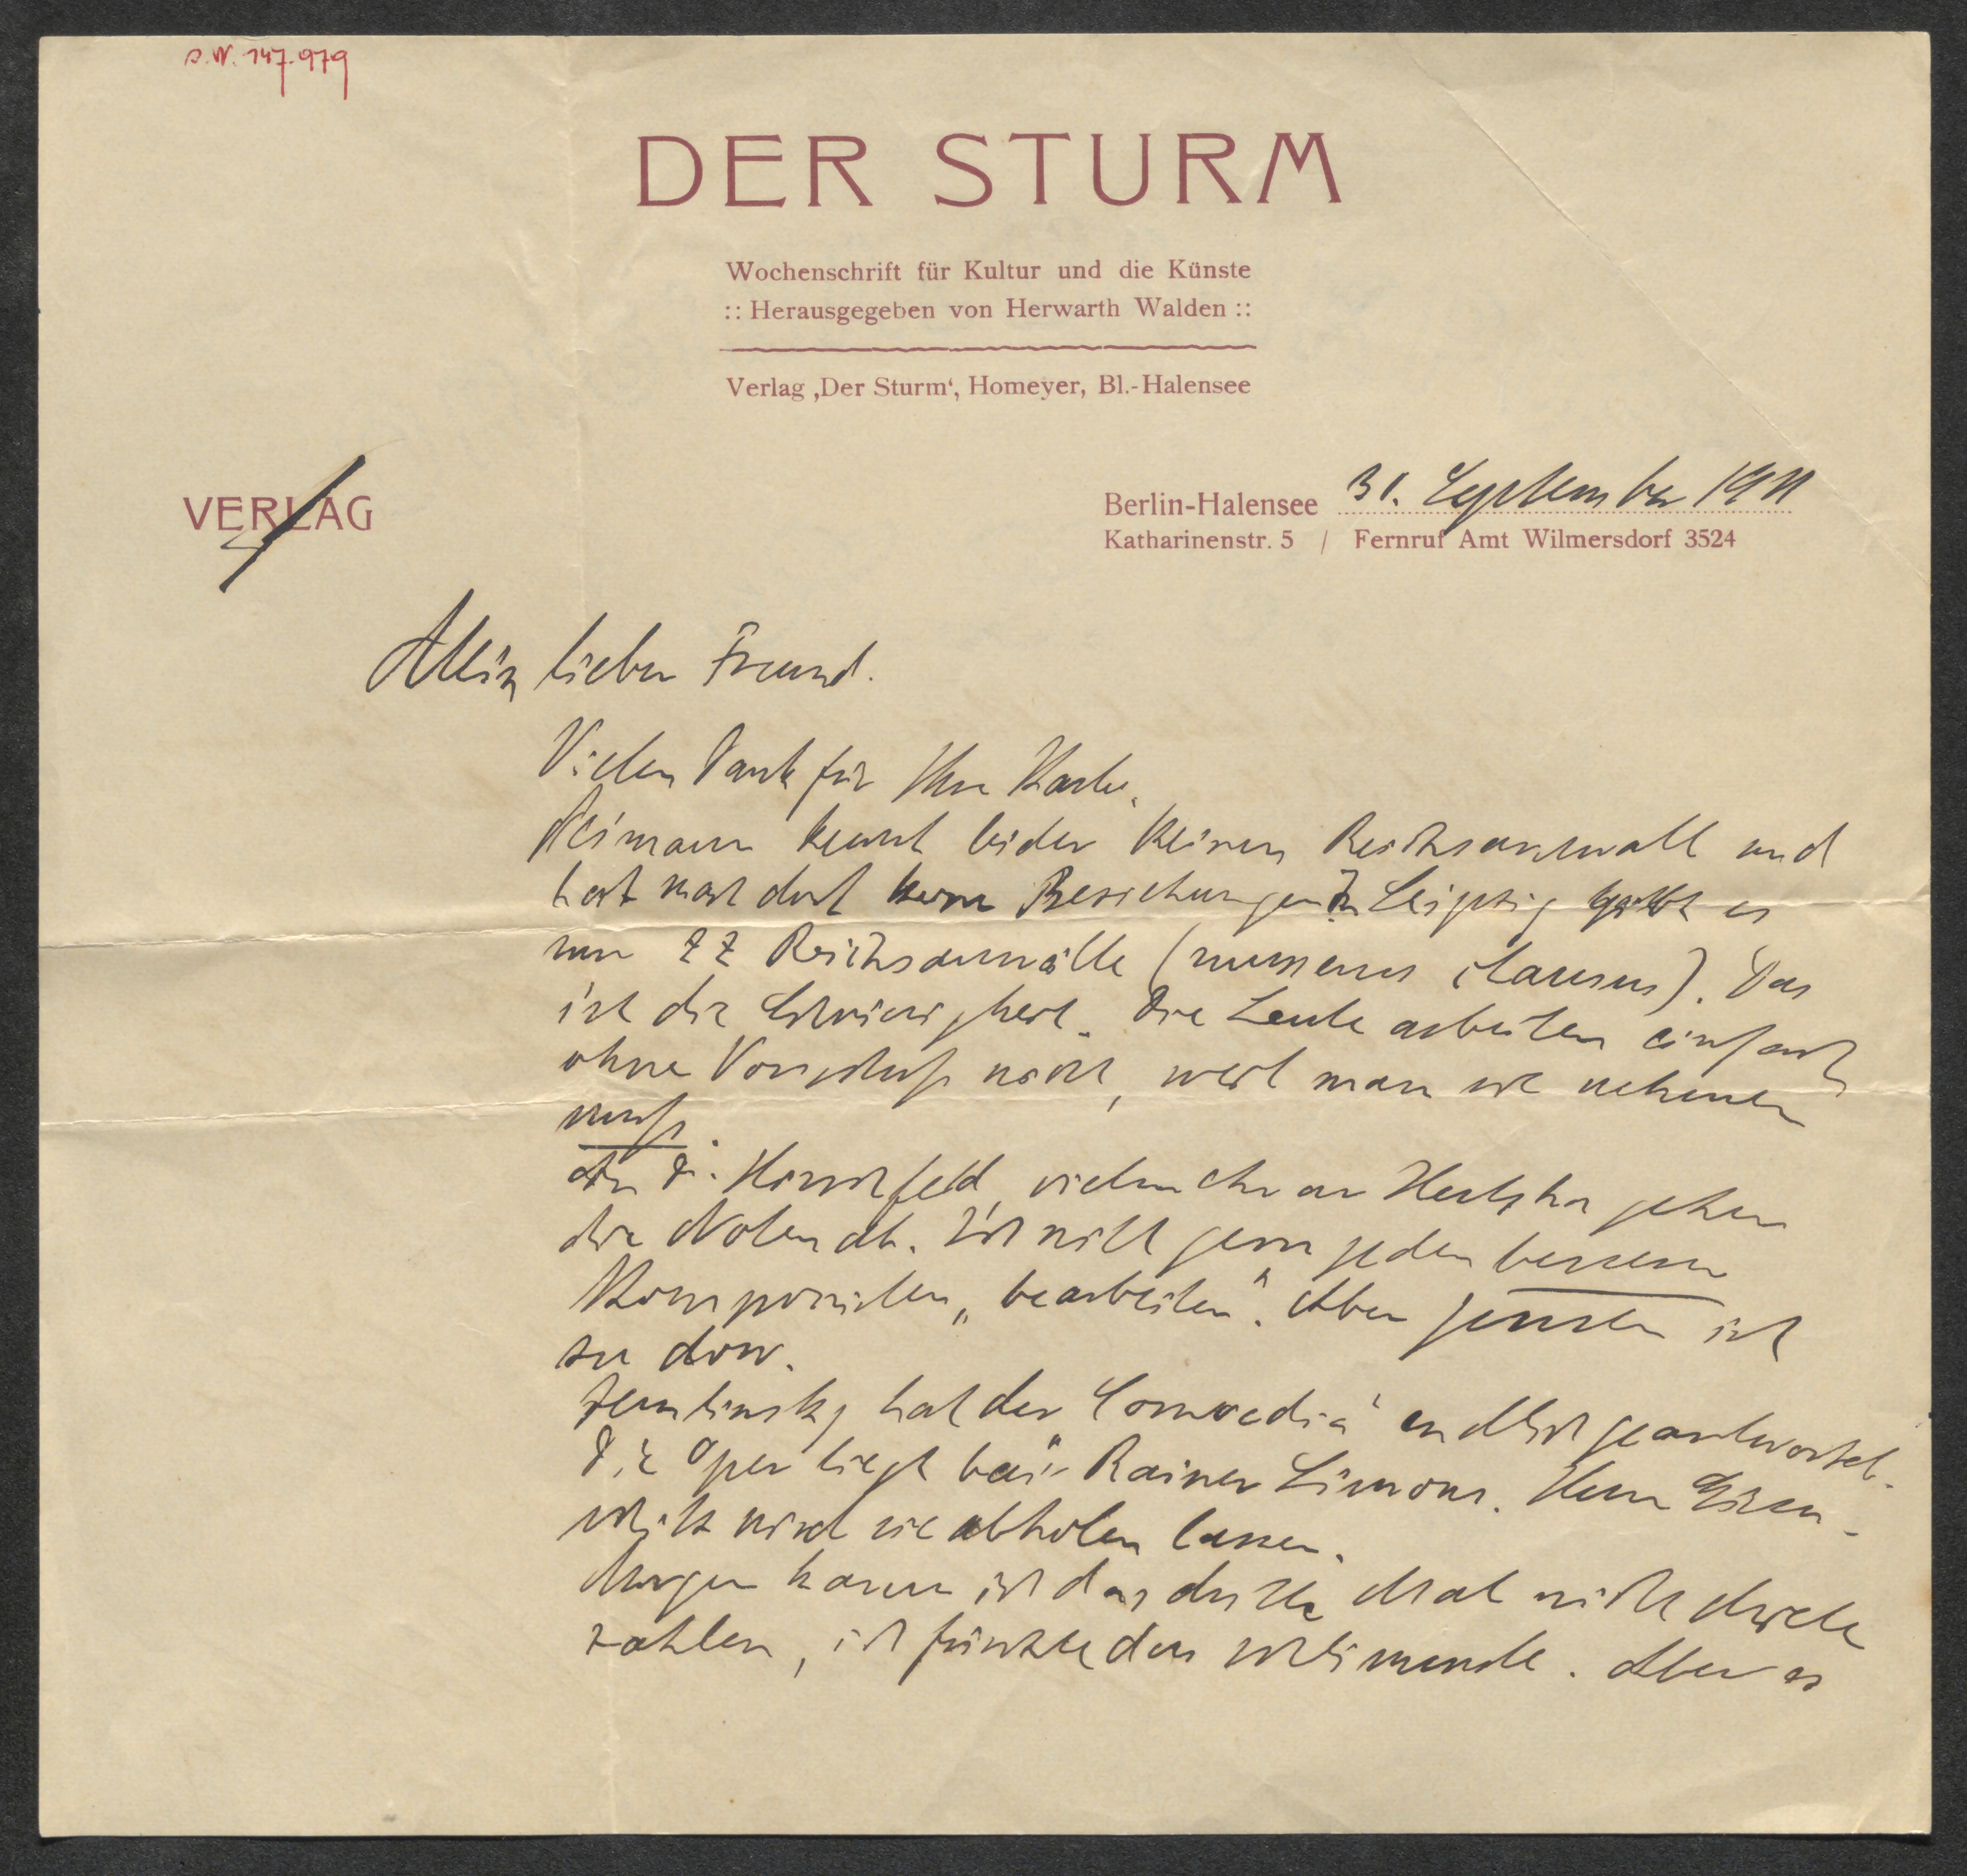 S.N. 147.979
DER STURM
Wochenschrift für Kultur und die Künste
:: Herausgegeben von Herwarth Walden ::
Verlag ‚Der Sturm‘, Homeyer, Bl.-Halensee
VERLAG
Berlin-Halensee 31. September 1911
Katharinenstr. 5 / Fernruf Amt Wilmersdorf 3524
Mein lieber Freund.
Vielen Dank für Ihre Karte.
kennt leider keinen Reichsanwalt und
hat auch dort keine Beziehungen. In Leipzig gibt es
nur 22 Reichsanwälte (numerus clausus). Das
ist die Schwierigkeit. Die Leute arbeiten einfach
ohne Vorschuß nicht, weil man sie nehmen
muß.
An Dr. Hirschfeld, vielmehr an Hertzka gehen
die Noten ab. Ich will gern jeden besseren
Komponisten „bearbeiten“. Aber ist
zu
Zemlinsky hat der „Comoedia“ endlich geantwortet.
Die Oper liegt bei Rainer Simons. Herr
wird sie abholen lassen.
Morgen kann ich das dritte Mal nicht Miete
zahlen, ich fürchte das Schlimmste. Aber es